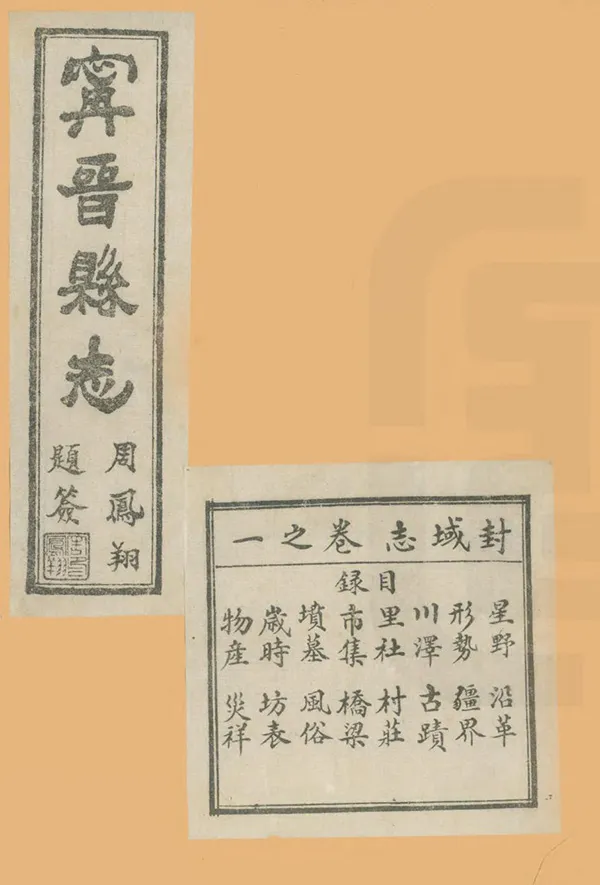 寗晉縣志
周鳳翔
題簽
周鳳翔
封域志 卷之一
目録
星野 沿革
形勢 疆界
川澤 古蹟
里社 村莊
市集 橋梁
墳墓 風俗
歲時 坊表
物産 災祥